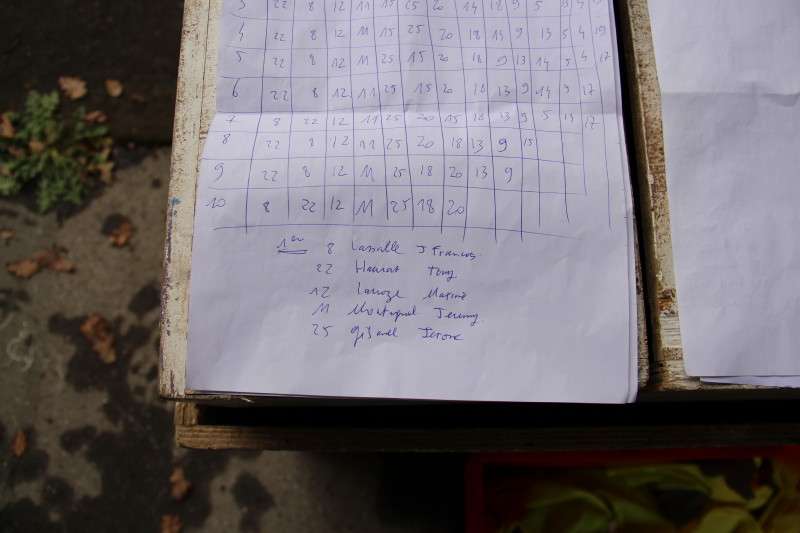 3 22 8 12 11 15 25 20 14 18 9 5 13 4
4 22 8 12 11 15 25 20 18 13 9 13 5 4 19
5 22 8 12 11 25 15 20 18 9 13 14 5 4 17
6 22 8 12 11 25 15 20 18 13 9 14 5 17
7 8 22 12 11 25 20 15 18 13 9 5 13 17
8 22 8 12 11 25 20 18 13 9 15
9 22 8 12 11 25 18 20 13 9
10 8 22 12 11 25 18 20
1er 8 Lassalle J Francois
22 Tony
12 Maxime
11 Jeremy
25 Jerome